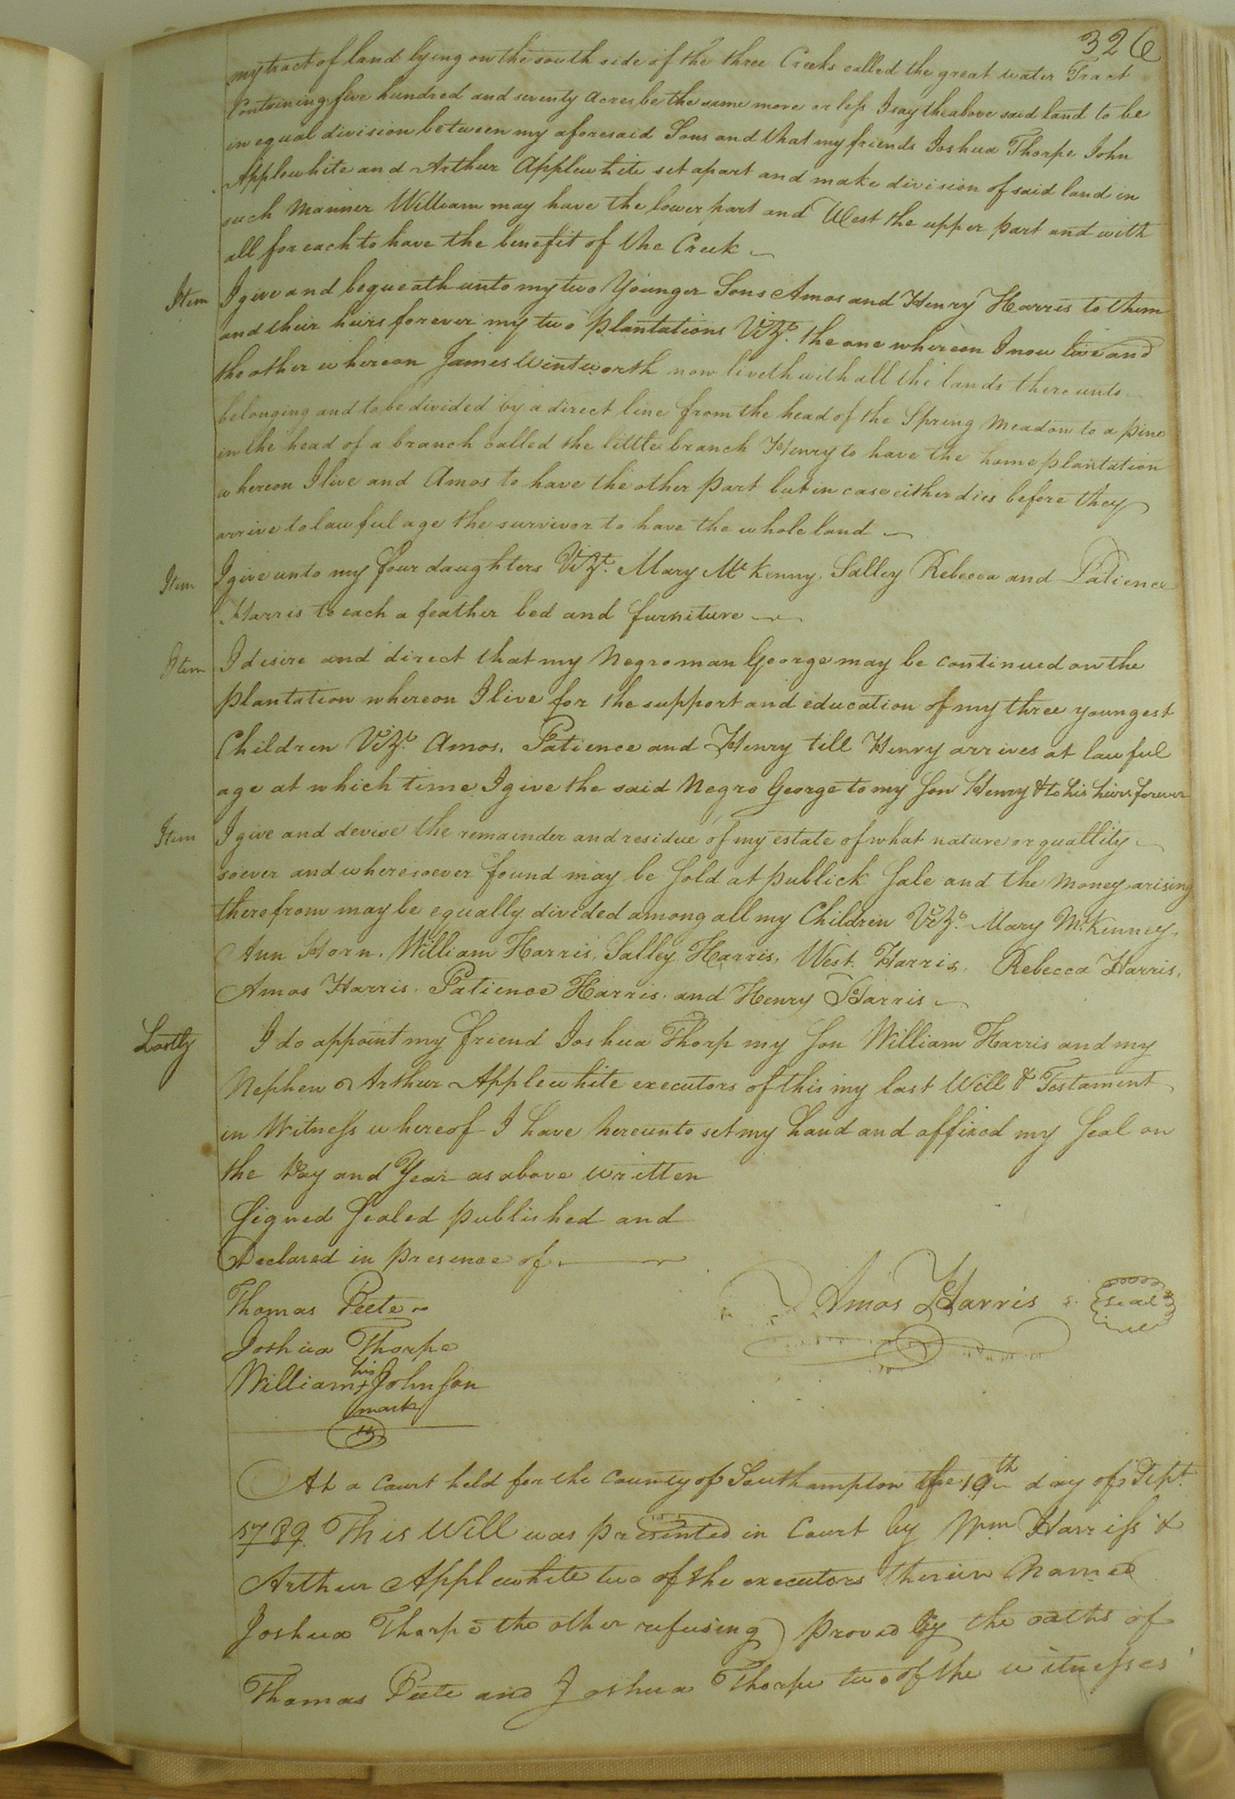 326
my tract of land lying on the south side of the three Creeks called the great water Tract
Containing five hundred and seventy acres be the same more or less I say the above said land to be
in equal division between my aforesaid Sons and that my friends Joshua Thorpe John
Applewhite and Arthur Applewhite set apart and make division of said land in
such Manner William may have the lower part and West the upper part and with
all for each to have the benefit of the Creek
Item I give and bequeath unto my two Younger Sons Amos and Henry Harris to them
and their heirs forever my two plantations Vizt. the one whereon I now live and
the other whereon James Wintworth now liveth with all the lands thereunto
belonging and to be divided by a direct line from the head of the Spring Meadow to a pine
in the head of a branch called the little branch Henry to have the home plantation
whereon I live and Amos to have the other part but in case either dies before they
arrive to lawful age the survivor to have the whole land
Item I give unto my four daughters Vizt. Mary McKenny, Salley Rebecca and Patience
Harris to each a feather bed and furniture
Item I desire and direct that my Negro man George may be continued on the
plantation whereon I live for the support and education of my three youngest
Children Vizt. Amos, Patience and Henry till Henry arrives at lawful
age at which time I give the said Negro George to my Son Henry & to his heirs forever
Item I give and devise the remainder and residue of my estate of what nature or quallity
soever and wheresoever found may be Sold at publick Sale and the Money arising
therefrom may be equally divided among all my Children Vizt. Mary McKenney,
Ann Horn, William Harris, Salley Harris, West Harris, Rebecca Harris,
Amos Harris, Patience Harris, and Henry Harris
Lastly I do appoint my friend Joshua Thorp my Son William Harris and my
Nephew Arthur Applewhite executors of this my last Will & Testament
in Witness whereof I have hereunto set my hand and affixed my Seal on
the Day and Year as above written
Signed Sealed published and
Declared in presence of
Thomas Peete
Amos Harris seal
Joshua Thorpe
his
William + Johnson
mark
At a Court held for the County of Southampton the 19th day of Sept.
1789. This Will was presented in Court by Wm Harriss &
Arthur Applewhite two of the executors therein Named
Joshua Thorpe the other refusing) proved by the oaths of
Thomas Peete and Joshua Thorpe two of the witnesses